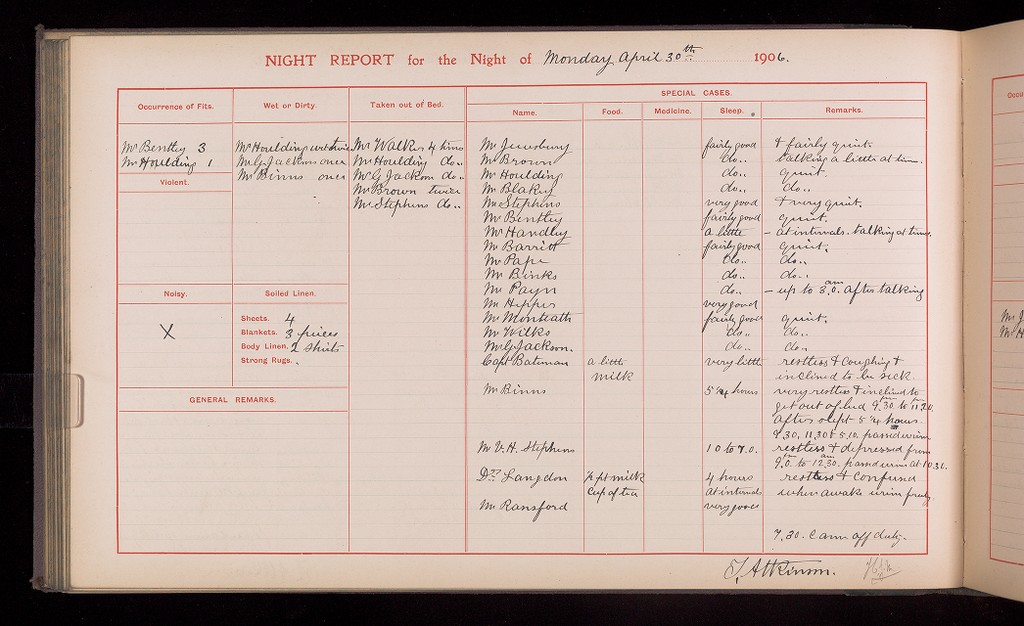 NIGHT REPORT for the Night of Monday April 30th 1906.
Occurrence of Fits.
Mr Bentley 3
Mr Houlding 1
Violent.
Noisy.
X
Wet or Dirty.
Mr Houlding wet twice
Mr G Jackson once
Mr Binns once
Soiled Linen.
Sheets. 4
Blankets. 3 pieces
Body Linen. 2 shirts
Strong Rugs.
GENERAL REMARKS.
Taken out of Bed.
Mr Walker 4 times
Mr Houlding do..
Mr G Jackson do..
Mr Brown twice
Mr Stephens do..
SPECIAL CASES.
Name. Food. Medicine. Sleep. Remarks.
Mr Jewsbury fairly good & fairly quiet.
Mr Brown do.. talking a little at times.
Mr Houlding do.. quiet.
Mr Blakey do.. do..
Mr Stephens very good & very quiet.
Mr Bentley fairly good quiet.
Mr Handley a little – at intervals. talking at times.
Mr Barritt fairly good quiet.
Mr Pape do.. do..
Mr Binks do.. do..
Mr Payn do.. – up to 3.0. am after talking
Mr Hipps very good
Mr Monteath fairly good quiet.
Mr Wilks do.. do..
Mr G Jackson. do.. do..
Capt Bateman a little very little restless & coughing &
milk inclined to be sick.
Mr Binns 5 1/4 hours very restless & inclined to
get out of bed 9.30. to 11.30.
after slept 5 1/4 hours.
9.30, 11.30 & 5.10. passed urine
Mr V. H. Stephens 10 to 7.0. restless & depressed from
9.0. to 12.30. am passed urine at 10.30.
Dr Langdon 1/2 pt milk 4 hours restless & confused
cup of tea at intervals when awake urine freely.
Mr Ransford very good
7.30. Came off duty.
T. Atkinson.